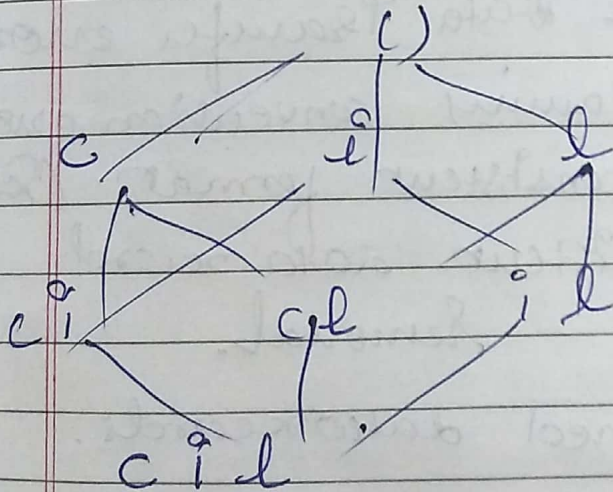 ()
c i l
ci cl il
cil